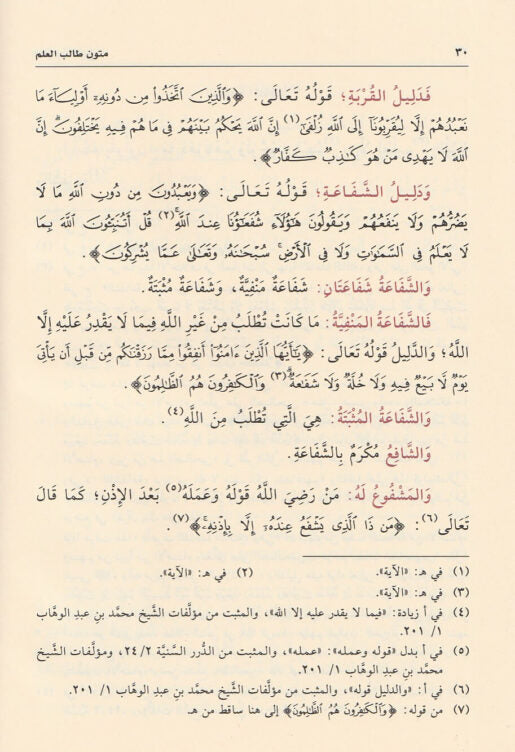 ٣٠ متون طالب العلم
فَدَلِيلُ القُرْبَةِ؛ قَوْلُهُ تَعَالَى: ﴿وَالَّذِينَ اتَّخَذُوا مِن دُونِهِ أَوْلِيَاءَ مَا
نَعْبُدُهُمْ إِلَّا لِيُقَرِّبُونَا إِلَى اللَّهِ زُلْفَىٰ (١) إِنَّ اللَّهَ يَحْكُمُ بَيْنَهُمْ فِي مَا هُمْ فِيهِ يَخْتَلِفُونَ ۗ إِنَّ
اللَّهَ لَا يَهْدِي مَنْ هُوَ كَاذِبٌ كَفَّارٌ﴾.
وَدَلِيلُ الشَّفَاعَةِ؛ قَوْلُهُ تَعَالَى: ﴿وَيَعْبُدُونَ مِن دُونِ اللَّهِ مَا لَا
يَضُرُّهُمْ وَلَا يَنفَعُهُمْ وَيَقُولُونَ هَٰؤُلَاءِ شُفَعَاؤُنَا عِندَ اللَّهِ ۚ (٢) قُلْ أَتُنَبِّئُونَ اللَّهَ بِمَا
لَا يَعْلَمُ فِي السَّمَاوَاتِ وَلَا فِي الْأَرْضِ ۚ سُبْحَانَهُ وَتَعَالَىٰ عَمَّا يُشْرِكُونَ﴾.
وَالشَّفَاعَةُ شَفَاعَتَانِ: شَفَاعَةٌ مَنْفِيَّةٌ، وَشَفَاعَةٌ مُثْبَتَةٌ.
فَالشَّفَاعَةُ المَنْفِيَّةُ: مَا كَانَتْ تُطْلَبُ مِنْ غَيْرِ اللَّهِ فِيمَا لَا يَقْدِرُ عَلَيْهِ إِلَّا
اللَّهُ؛ وَالدَّلِيلُ قَوْلُهُ تَعَالَى: ﴿يَا أَيُّهَا الَّذِينَ ءَامَنُوا أَنفِقُوا مِمَّا رَزَقْنَاكُم مِّن قَبْلِ أَن يَأْتِيَ
يَوْمٌ لَّا بَيْعٌ فِيهِ وَلَا خُلَّةٌ وَلَا شَفَاعَةٌ ۗ (٣) وَالْكَافِرُونَ هُمُ الظَّالِمُونَ﴾.
وَالشَّفَاعَةُ المُثْبَتَةُ: هِيَ الَّتِي تُطْلَبُ مِنَ اللَّهِ (٤).
وَالشَّافِعُ مُكْرَمٌ بِالشَّفَاعَةِ.
وَالمَشْفُوعُ لَهُ: مَنْ رَضِيَ اللَّهُ قَوْلَهُ وَعَمَلَهُ (٥) بَعْدَ الإِذْنِ؛ كَمَا قَالَ
تَعَالَى (٦): ﴿مَن ذَا الَّذِي يَشْفَعُ عِندَهُ إِلَّا بِإِذْنِهِ ۚ﴾ (٧)
(١) في هـ: «الآية». (٢) في هـ: «الآية».
(٣) في هـ: «الآية».
(٤) في أ زيادة: «فيما لا يقدر عليه إلا الله»، والمثبت من مؤلَّفات الشَّيخ محمَّد بنِ عبدِ الوهَّاب
١/ ٢٠١.
(٥) في أ بدل «قوله وعمله»: «عمله»، والمثبت من الدُّرر السنيَّة ٢/ ٢٤، ومؤلَّفات الشَّيخ
محمَّد بنِ عبدِ الوهَّاب ١/ ٢٠١.
(٦) في أ: «والدليل قوله»، والمثبت من مؤلَّفات الشَّيخ محمَّد بنِ عبدِ الوهَّاب ١/ ٢٠١.
(٧) من قوله: ﴿وَالْكَافِرُونَ هُمُ الظَّالِمُونَ﴾ إلى هنا ساقط من هـ.